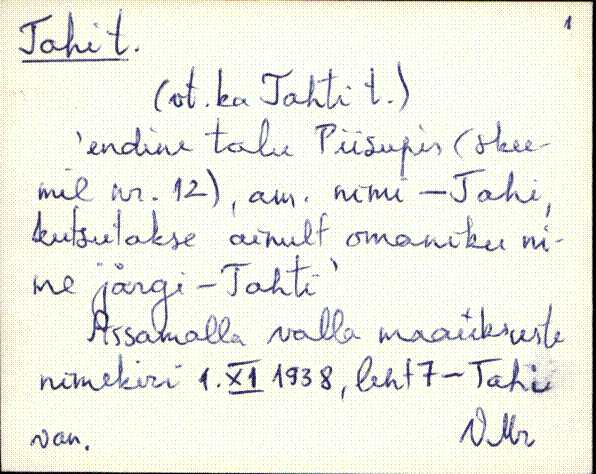 1
Tahi t.
(vt. ka Tahti t.)
'endine talu Piisupis (skee-
mil nr. 12), am. nimi – Tahi,
kutsutakse ainult omaniku ni-
me järgi – Tahti'
Assamalla valla maaüksuste
nimekiri 1. XI 1938, leht 7 – Tahi
van. VMr